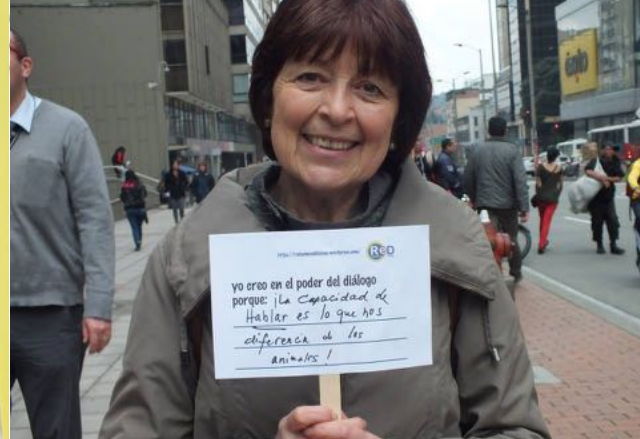 ReD
yo creo en el poder del diálogo
porque: ¡La capacidad de
Hablar es lo que nos
diferencia de los
animales!
éxito